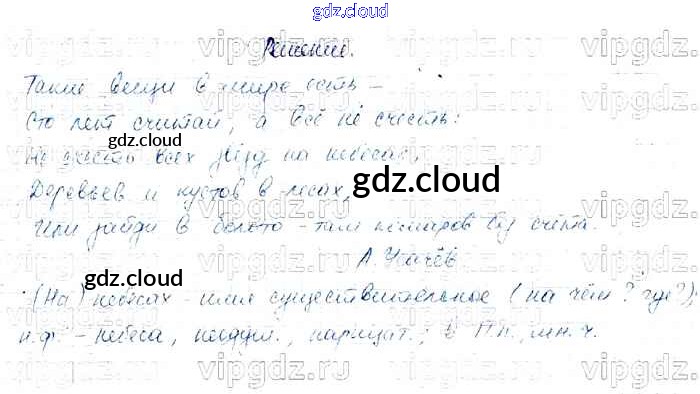 gdz.cloud
Решение.
Такие вещи в мире есть –
Сто лет считай, а всё не счесть:
Не счесть всех звёзд на небесах,
Деревьев и кустов в лесах,
Или зайди в болото – там комаров без счёта.
А. Усачёв
(На) небесах – имя существительное (на чём? где?);
н.ф. – небеса, неодуш., нарицат.; в П.п., мн.ч.
gdz.cloud
gdz.cloud
gdz.cloud
vipgdz.ru